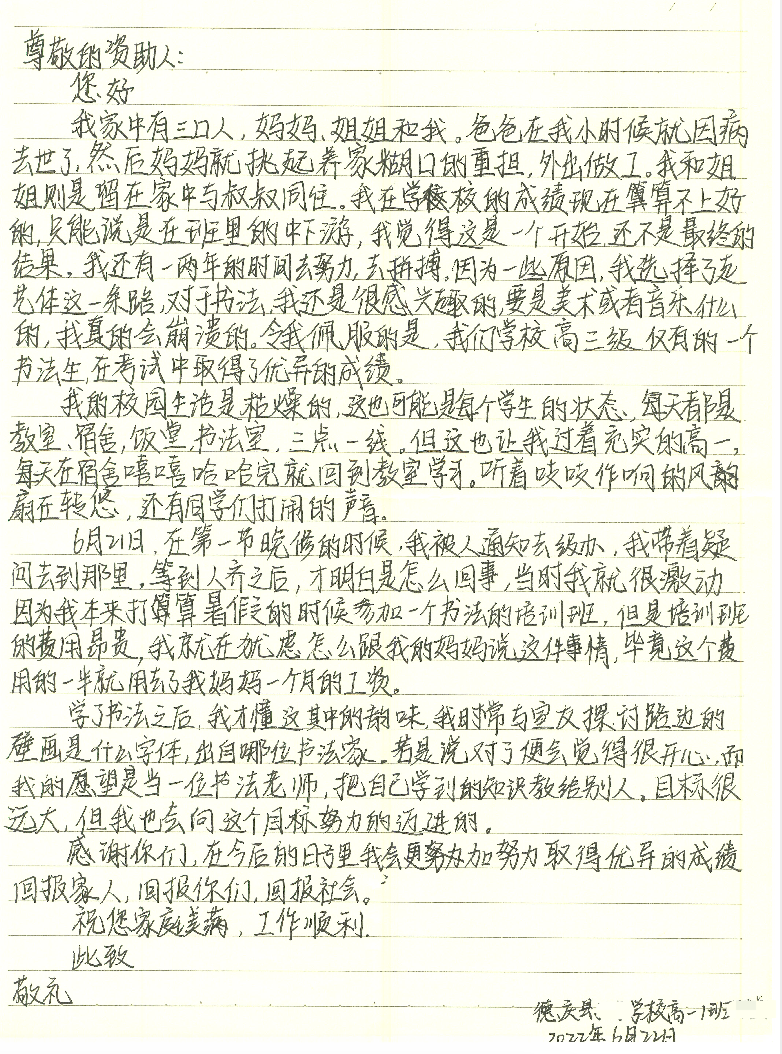 尊敬的资助人：
您好
我家中有三口人，妈妈、姐姐和我。爸爸在我小时候就因病
去世了，然后妈妈就挑起养家糊口的重担，外出做工。我和姐
姐则是留在家中与叔叔同住。我在学校的成绩现在算不上好
的，只能说是在班里的中下游，我觉得这是一个开始，还不是最终的
结果。我还有一两年的时间去努力，去拼搏。因为一些原因，我选择了走
艺体这一条路，对于书法，我还是很感兴趣的，要是美术或者音乐什么
的，我真的会崩溃的。令我佩服的是，我们学校高三级仅有的一个
书法生，在考试中取得了优异的成绩。
我的校园生活是枯燥的，这也可能是每个学生的状态、每天都是
教室、宿舍，饭堂，书法室，三点一线。但这也让我过着充实的高一，
每天在宿舍嘻嘻哈哈完就回到教室学习。听着吱吱作响的风
扇在转悠，还有同学们打闹的声音。
6月21日，在第一节晚修的时候，我被人通知去级办，我带着疑
问去到那里。等到人齐之后，才明白是怎么回事，当时我就很激动
因为我本来打算暑假的时候参加一个书法的培训班，但是培训班
的费用昂贵，我就在忧虑怎么跟我的妈妈说这件事情，毕竟这个费
用的一半就用去了我妈妈一个月的工资。
学了书法之后，我才懂这其中的韵味，我时常与室友探讨路边的
壁画是什么字体，出自哪位书法家。若是说对了便会觉得很开心，而
我的愿望是当一位书法老师，把自己学到的知识教给别人。目标很
远大，但我也会向这个目标努力的迈进的。
感谢你们，在今后的日子里我会更加努力取得优异的成绩
回报家人，回报你们，回报社会。
祝您家庭美满，工作顺利.
此致
敬礼
德庆县 学校高一1班
2022年6月22日